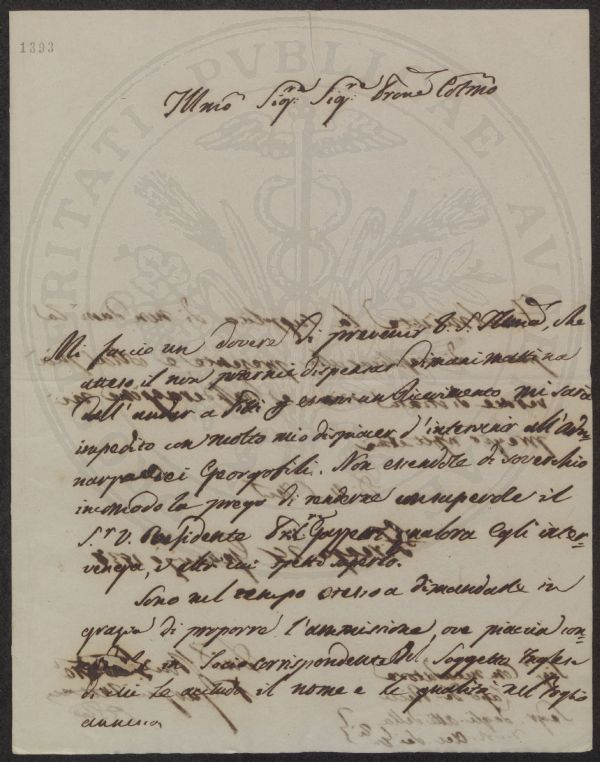 1393
Illmo Sigre Sigre Prone Colmo
Mi faccio un dovere di prevenir V. S. Illma, che
atteso il non potermi dispensar dimani mattina
dall'andar a Pitti p esservi un Ricevimento mi sarà
impedito con molto mio dispiacer d'intervenir all'Adu-
nanza dei Georgofili. Non essendole di soverchio
incomodo la prego di renderne consapevole il
Sr V. Presidente Gasperi qualora egli inter-
venga, o altri cui spetti saperlo.
Sono nel tempo stesso a dimandarle in
grazia di proporre l'ammissione, ove piaccia con-
in Socio Corrispondente del Soggetto Inglese
di cui Le accludo il nome e le qualità nel foglio
annesso